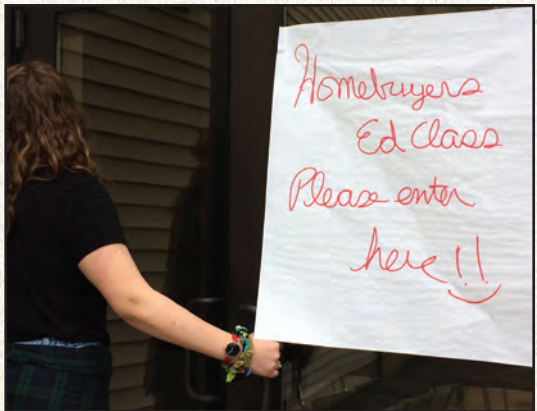 Homebuyers
Ed Class
Please enter
here!!